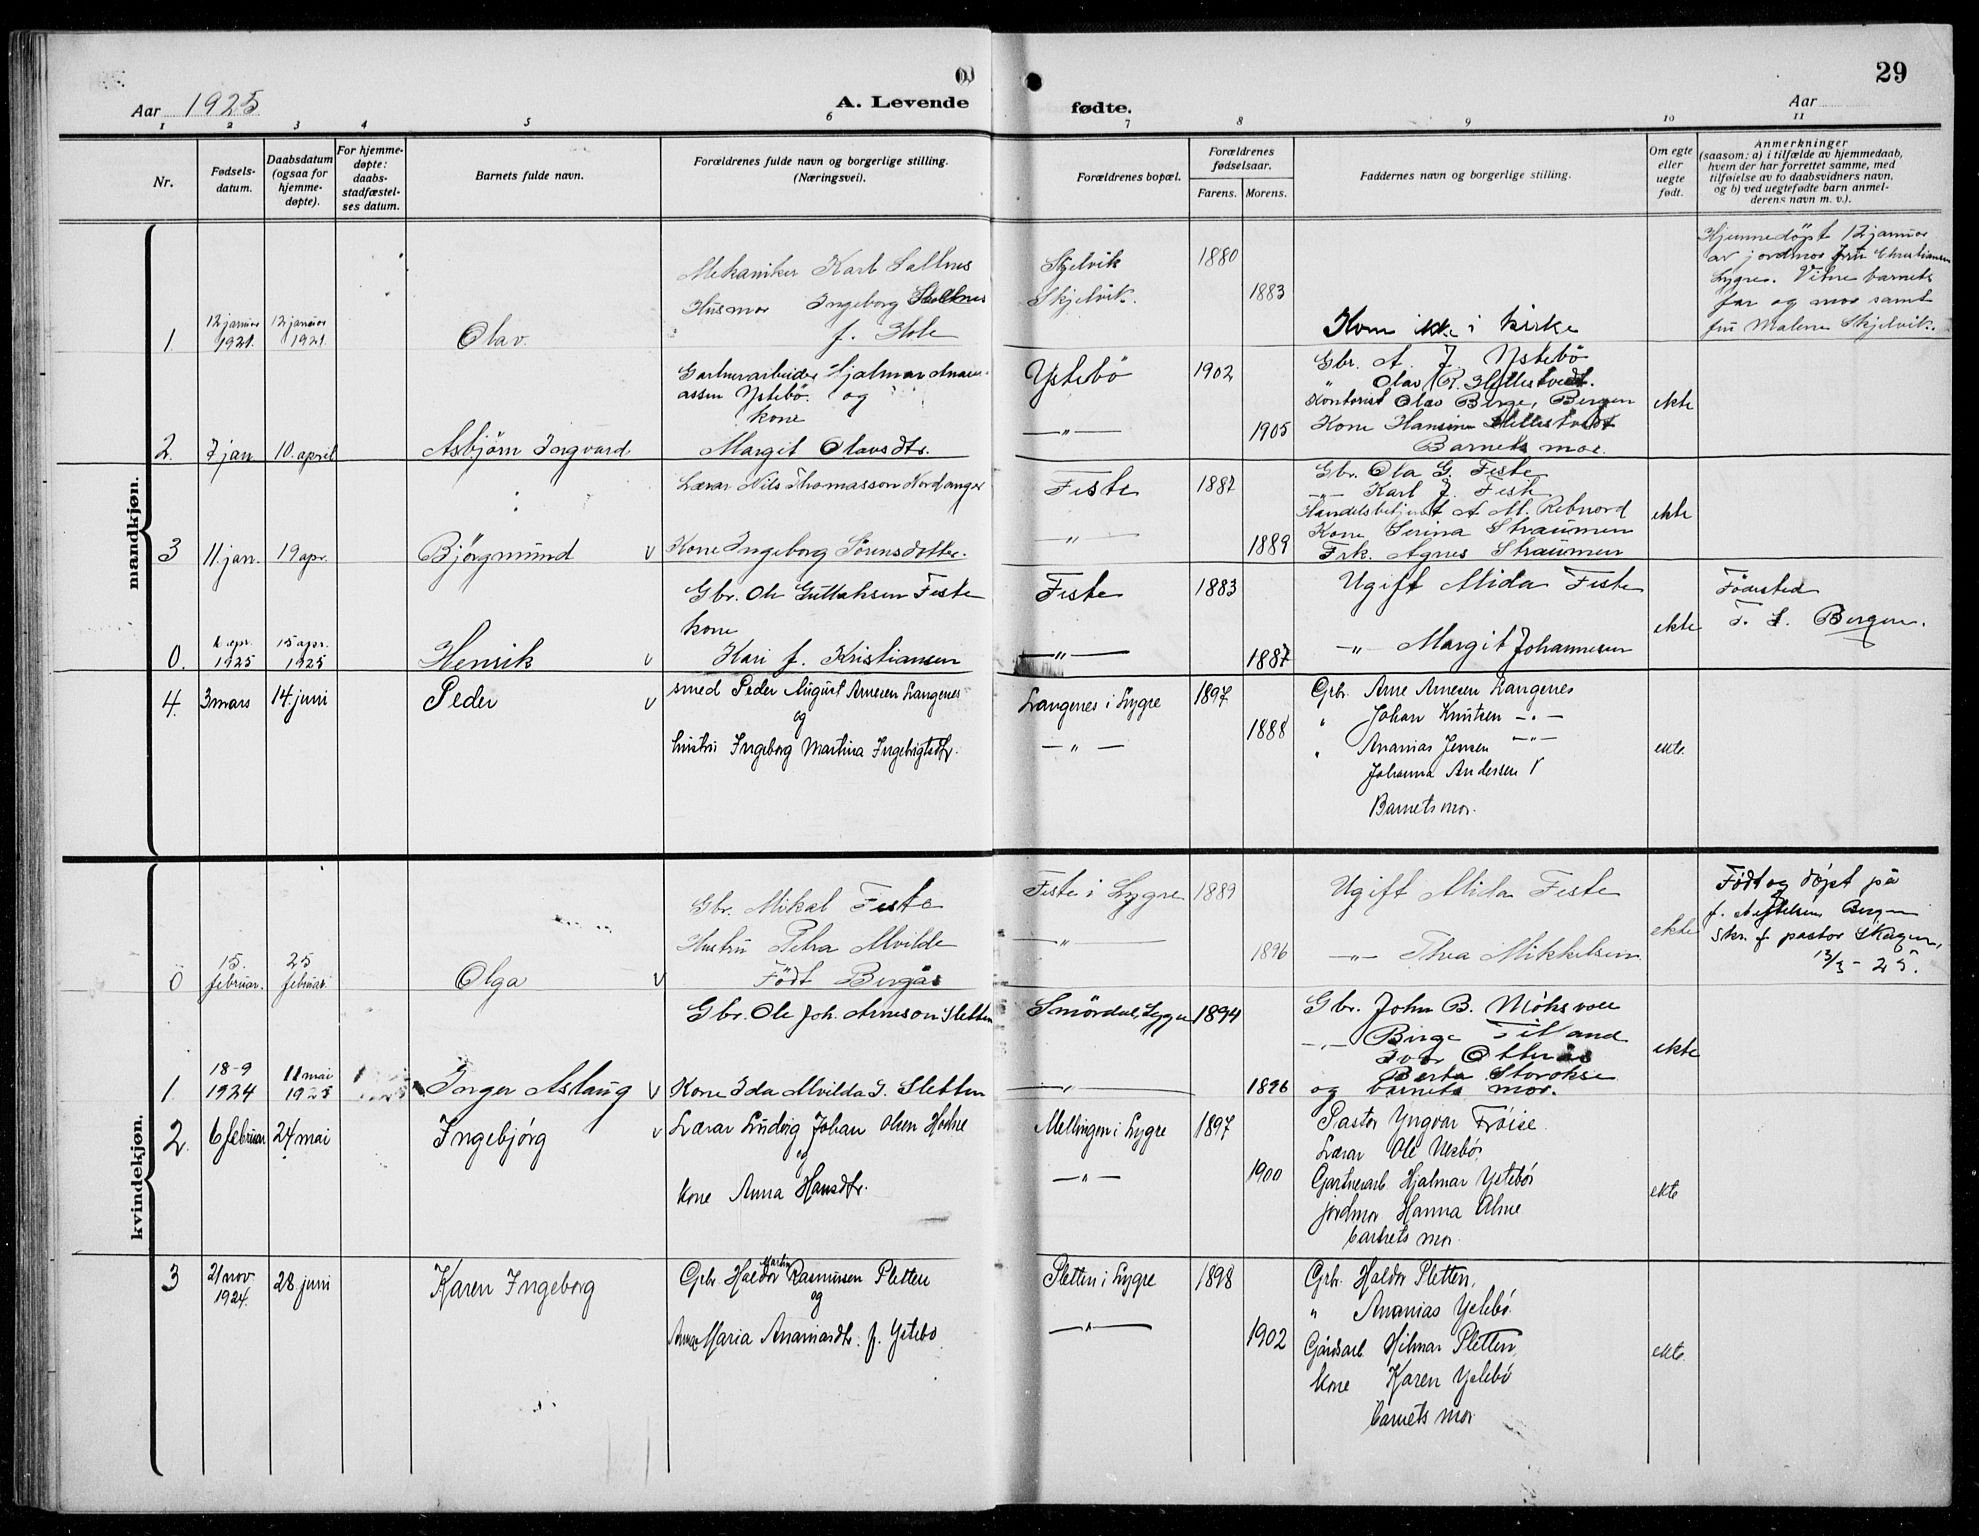 29
Aar 1925
A. Levende fødte.
Aar
1 2 3 4 5 6 7 8 9 10 11
Nr.
Fødsels-
datum.
Daabsdatum
(ogsaa for
hjemme-
døpte).
For hjemme-
døpte:
daabs-
stadfæstel-
ses datum.
Barnets fulde navn.
Forældrenes fulde navn og borgerlige stilling.
(Næringsvei).
Forældrenes bopæl.
Forældrenes
fødselsaar.
Farens. Morens.
Faddernes navn og borgerlige stilling.
Om egte
eller
uegte
født.
Anmerkninger
(saasom: a) i tilfælde av hjemmedaab,
hvem der har forrettet samme, med
tilføielse av to daabsvidners navn,
og b) ved uegtefødte barn anmel-
derens navn m. v.).
mandkjøn.
1. 12 januar 1921. 12 januar 1921
Olav.
Mekaniker Karl Sallnes
Husmor Ingeborg
f. Hole
Skjelvik 1880
Skjelvik. 1883
Kom ikke i kirke
Hjemmedöpt 12 januar
av jordmor fru Christiansen
Lygre. Vitne barnets
far og mor samt
fru Malene Skjelvik.
2. 7 jan 10. april
Asbjørn Ingvard.
Gartnerarbeider Hjalmar Anani-
assen Ystebö. og
kone
Margit Olavsdtr.
Ystebö 1902
—"— 1905
Gbr. A. J. Ystebö
" Olav R. Hellestvedt.
Kontorist Olav Berge, Bergen
Kone Hansine Hellestvedt
Barnets mor.
ekte
3 11. jan. 19 apr.
Björgmund v
Lærar Nils Thomasson Nordanger
Kone Ingeborg Sørensdotter.
Feste 1887
—"— 1889
Gbr. Ola G. Feste
—"— Karl J. Feste
Handelsbetjent A. M. Rebnord
Kone Serina Straumen
Frk. Agnes Straumen
ekte
0. 6 apr. 1925 15 apr. 1925
Henrik v
Gbr. Ole Guttormsen Feste
kone
Kari f. Kristiansen
Feste 1883
—"— 1887
Ugift Alida Feste
—"— Margit Johannesen
ekte
Födested
F. S. Bergen.
4. 3 mars 14. juni
Peder v
smed Peder August Arnesen Langenes
og
hustru Ingeborg Martina Ingebrigtsdtr.
Langenes i Lygre 1897
—"— 1888
Grb. Arne Arnesen Langenes
" Johan Knutsen —"—
" Ananias Jensen —"—
Johanna Andersen
Barnets mor.
ekte.
kvindekjøn.
0 15. februar. 25 februar
Olga v
Gbr. Mikal Feste
Hustru Petra Alvilde
Født Bergås
Feste i Lygre 1889
—"— 1896
Ugift Alida Feste
—"— Thea Mikkelsen
ekte
Født og døpt på
f. stiftelsen Bergen
skr. f. pastor Skagen,
13/3 - 25.
1. 18-9 1924 11 mai 1925
Inger Aslaug v
Gbr. Ole Joh. Arneson Sletten
Kone Ida Alvilda J. Sletten
Smördal, Lygre 1894
—"— 1896
Gbr. John B. Moksvoll
—"— Birge Titland
Ivar Otterås
Berta Storokse
og barnets mor.
ekte
2. 6 februar 24 mai
Ingebjørg v
Lærar Ludvig Johan Olsen Hodne
og
kone Anna Hansdtr.
Mellingen i Lygre 1897
—"— 1900
Pastor Yngvar Frøise.
Lærar Ole Nesbø.
Gartnerarb. Hjalmar Ystebø
jordmor Hanna Alme
barnets mor.
ekte
3 21 nov. 1924. 28. juni
Karen Ingeborg
Grb. Haldor Martin Rasmussen Pletten
og
Anna Maria Ananiasdtr. f. Ystebø
Pletten i Lygre 1898
—"— 1902
Grb. Haldor Pletten,
" Ananias Ystebø.
Gårdsarb. Hilmar Pletten
kone Karen Ystebø
barnets mor
ekte.